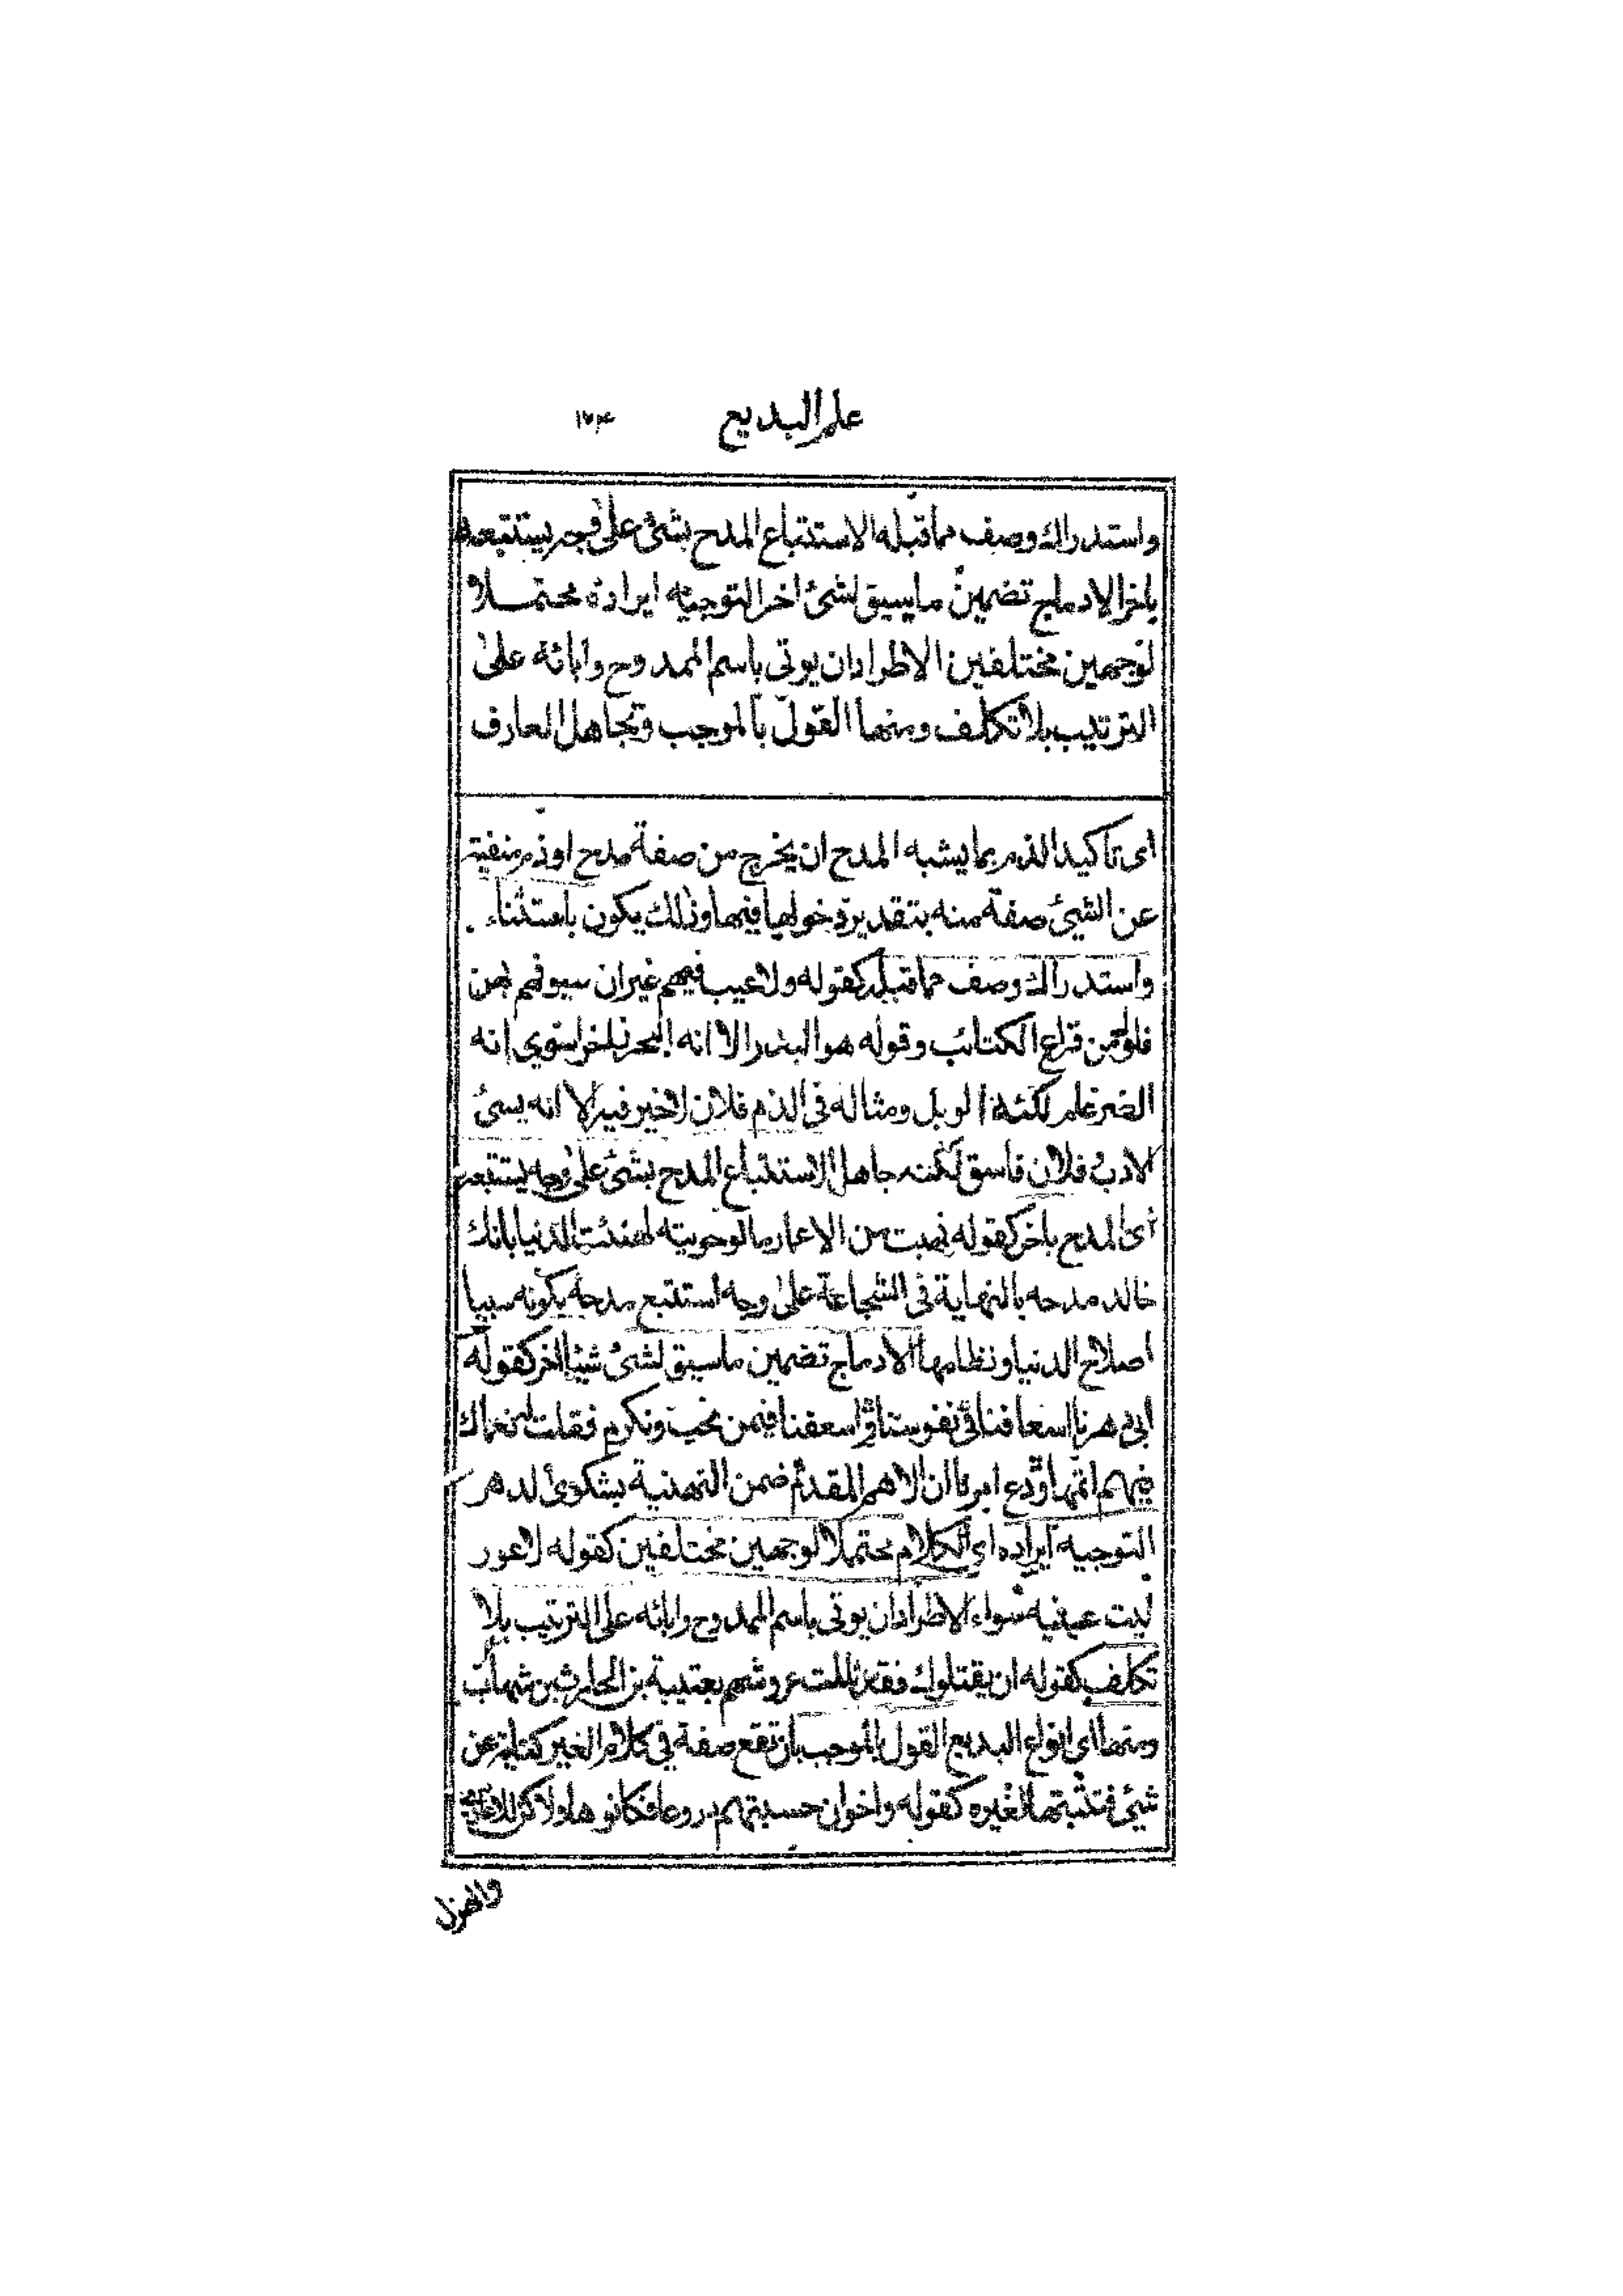 علم البديع ١٧٤
واستدراك وصف مما قبله الاستتباع المدح بشئ على وجه يستتبعه
باخر الادماج تضمين ما سيق لشئ اخر التوجيه ايراده محتملا
لوجهين مختلفين الاطراد ان يوتى باسم الممدوح وابائه على
الترتيب بلا تكلف ومنها القول بالموجب وتجاهل العارف
اى تاكيد الذم بما يشبه المدح ان يخرج من صفة مدح او ذم منفية
عن الشئ صفة منه بتقدير دخولها فيها وذلك يكون باستثناء
واستدراك وصف مما قبله كقوله ولا عيب فيهم غير ان سيوفهم بهن
فلول من قراع الكتائب وقوله هو البدر الا انه البحر زاخرا سوي انه
الضرغام لكنه الوبل ومثاله في الذم فلان لا خير فيه الا انه يسئ
الادب فلان فاسق لكنه جاهل الاستتباع المدح بشئ على وجه يستتبعه
اى المدح باخر كقوله نهبت من الاعمار ما لو حويته لهنئت الدنيا بانك
خالد مدحه بالنهاية فى الشجاعة على وجه استتبع مدحه بكونه سببا
اصلاح الدنيا ونظامها الادماج تضمين ما سيق لشئ شيئا اخر كقوله
ابى دهرنا اسعافنا فى نفوسنا واسعفنا فيمن نحب ونكرم فقلت له نعماك
فيهم اتمها ودع امرنا ان الاهم المقدم ضمن التهنية بشكوى الدهر
التوجيه ايراده اي الكلام محتملا لوجهين مختلفين كقوله لاعور
ليت عينيه سواء الاطراد ان يوتى باسم الممدوح وابائه على الترتيب بلا
تكلف كقوله ان يقتلوك فقد ثللت عروشهم بعتيبة بن الحارث بن شهاب
ومنها اى انواع البديع القول بالموجب بان تقع صفة في كلام الغير كناية عن
شئ فتثبتها لغيره كقوله واخوان حسبتهم دروعا فكانوها ولاكن للاعادي
والهزل